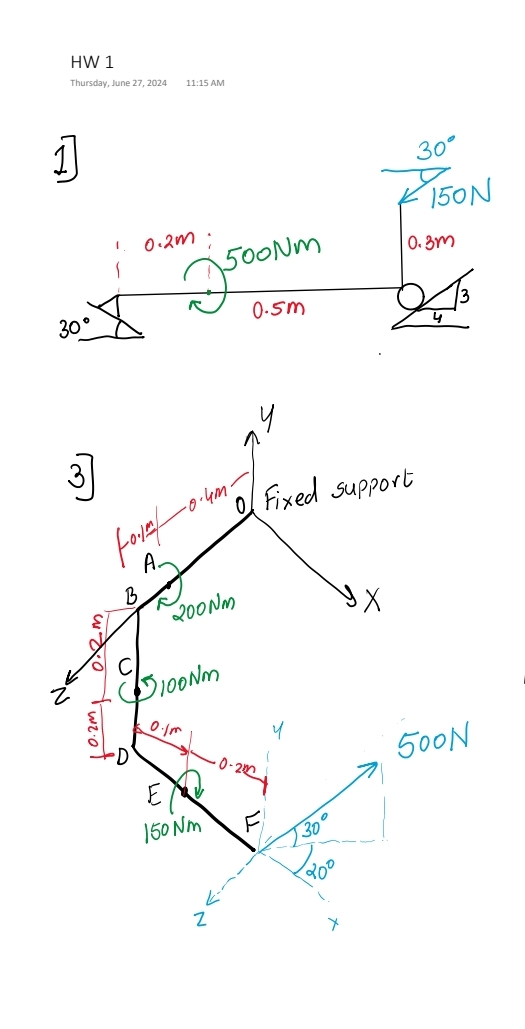 HW 1
Thursday, June 27, 2024 11:15 AM
1]
30°
150N
0.2m
500Nm
0.3m
0.5m
30°
3
4
3]
Y
0.1m
0.4m
O Fixed support
A
B
200Nm
X
0.2m
Z
C
100Nm
0.2m
0.1m
D
0.2m
Y
500N
E
150Nm
F
30°
20°
Z
X